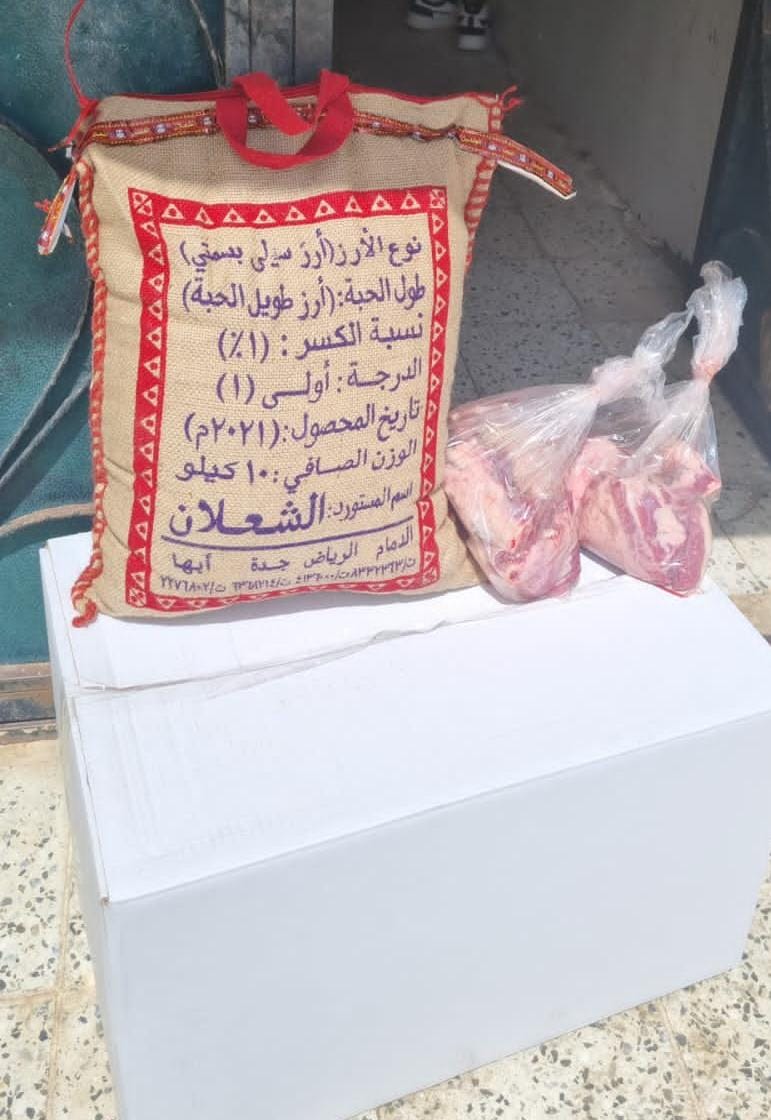 نوع الأرز(أرز سيلي بسمتي)
طول الحبة:(أرز طويل الحبة)
نسبة الكسر: (١٪)
الدرجة: أولى (١)
تاريخ المحصول:(٢٠٢١م)
الوزن الصافي: ١٠ كيلو
اسم المستورد: الشعلان
الدمام الرياض جدة أبها
ت/٨٣٣٢٣٦٣ ت/٤١٣٦٠٠٠ ت/٦٣٦٨٢١٤ ت/٢٢٧٦٨٠٢